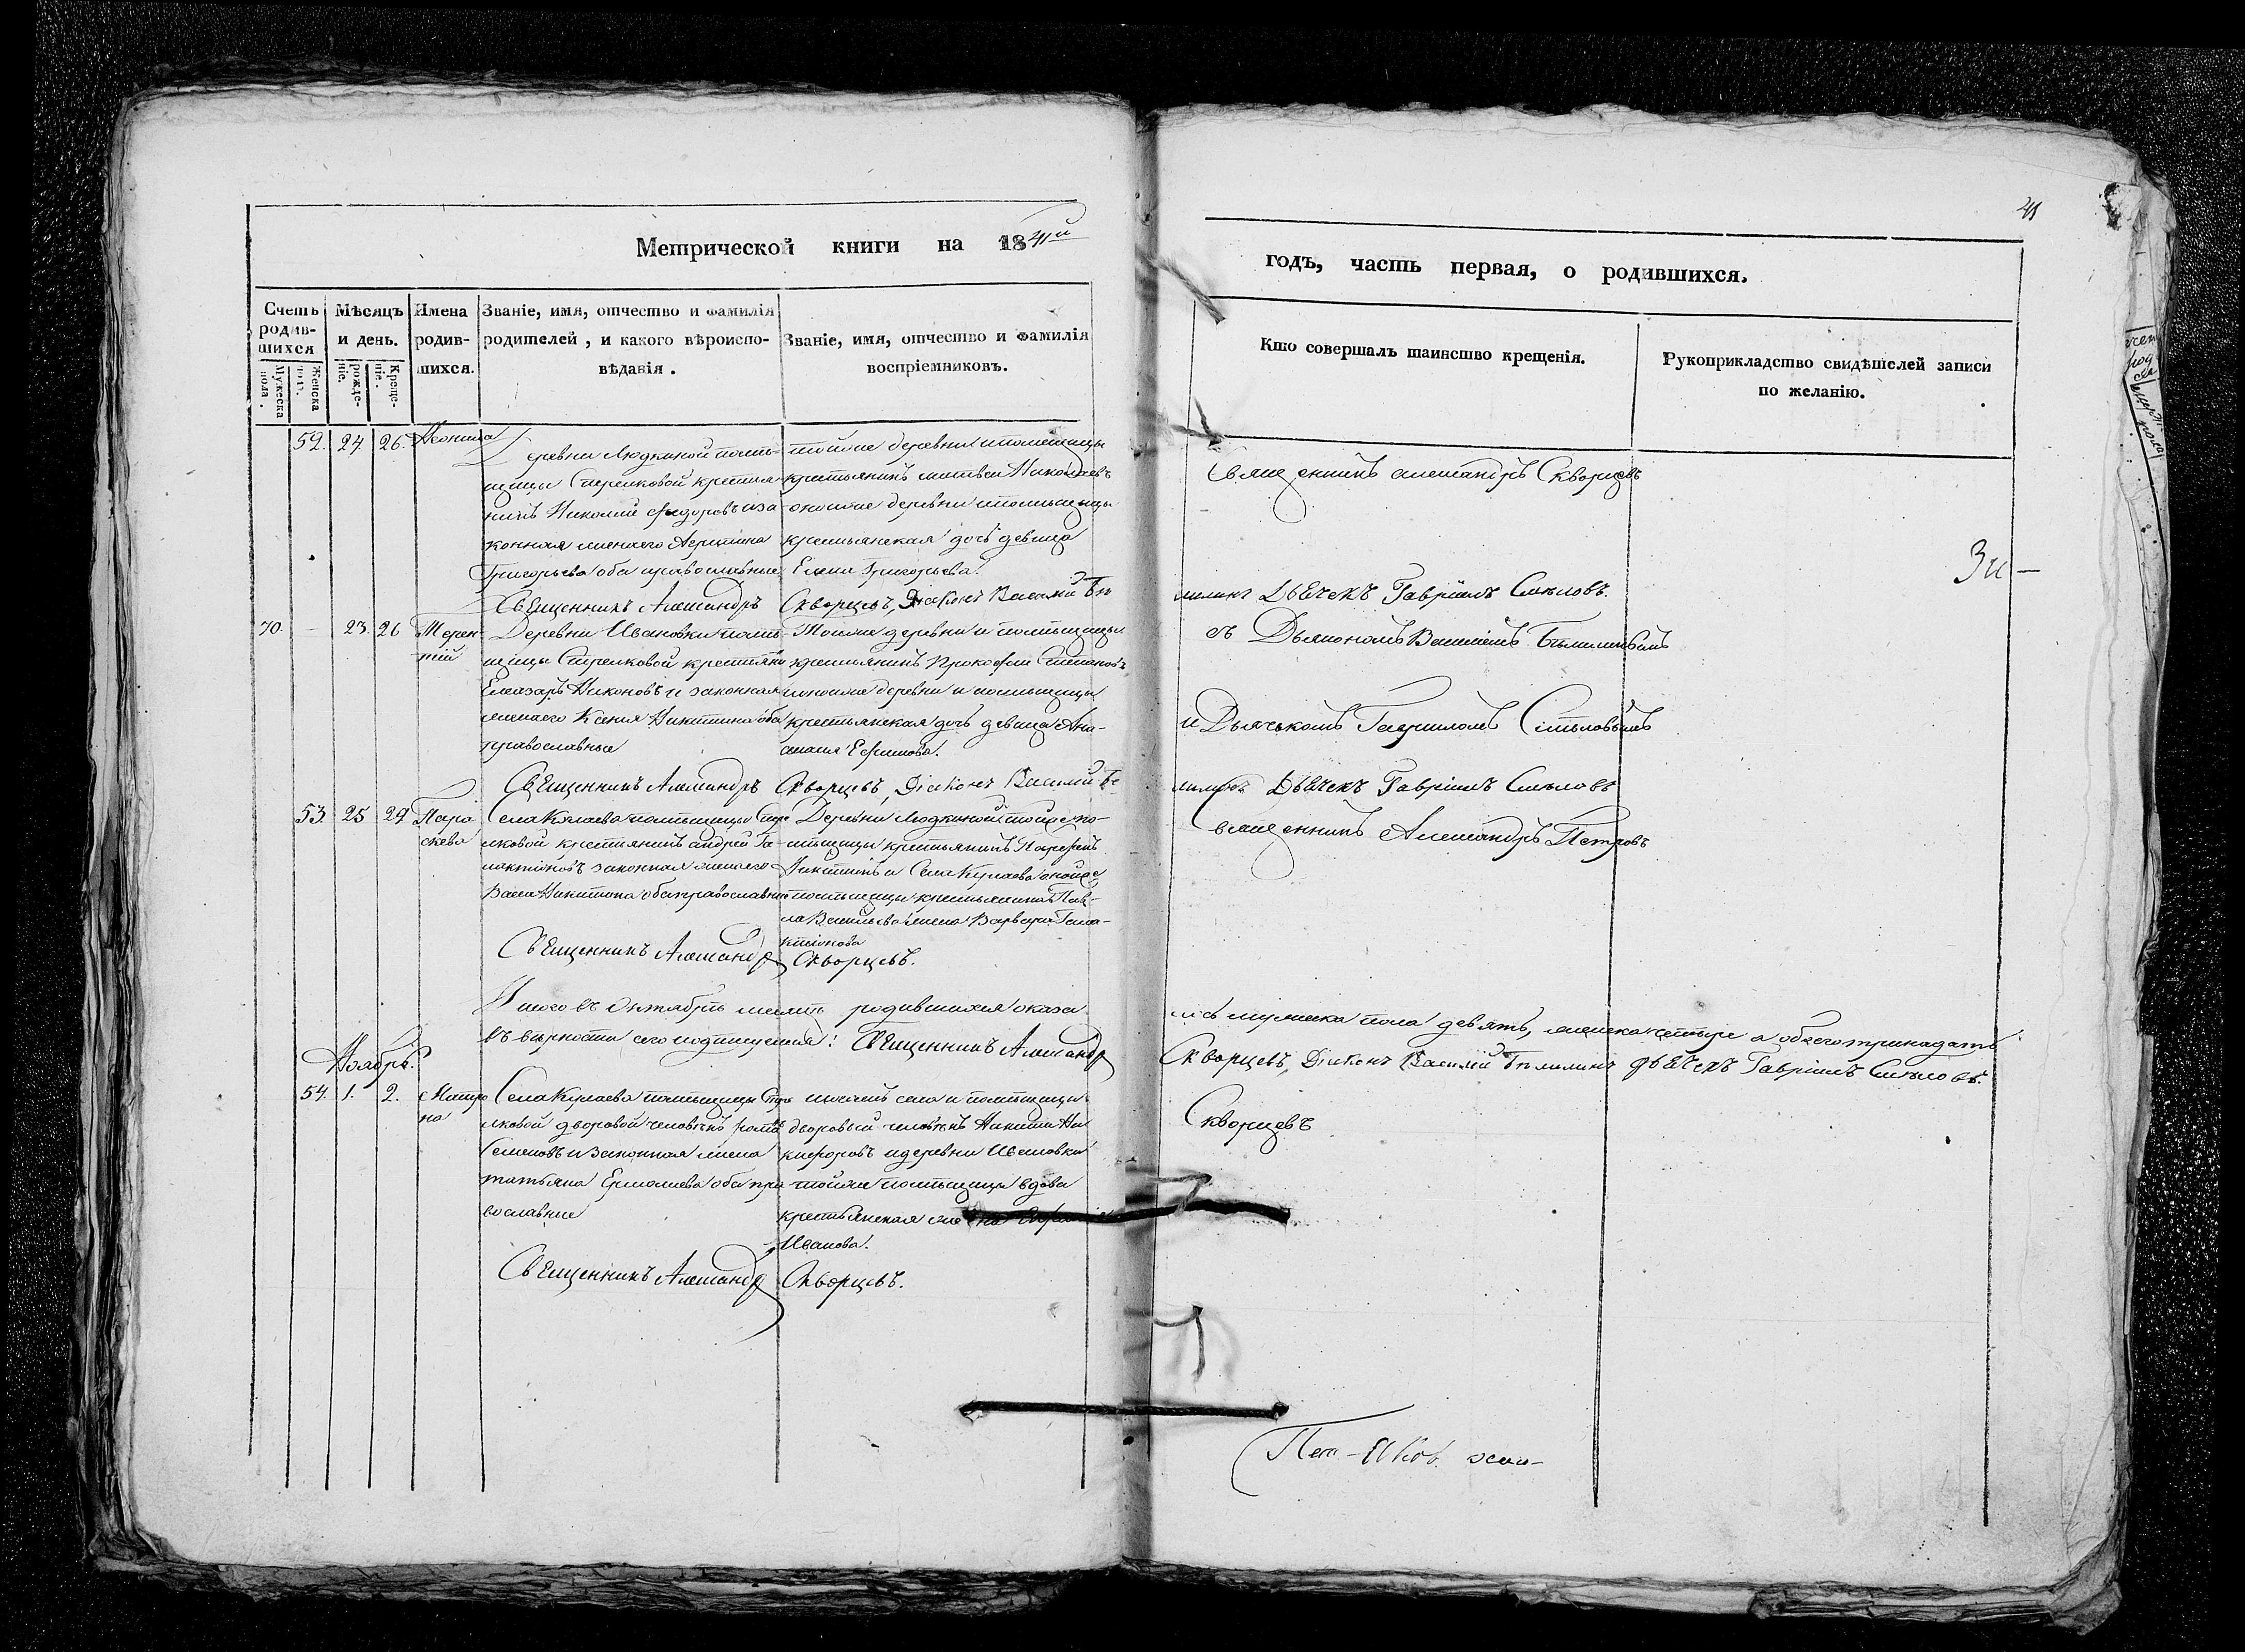 41
Метрической книги на 1841й
годъ, часть первая, о родившихся.
Счетъ родив-шихся
Мужеска пола.
Женска пола.
Мѣсяцъ и день.
рожде-ніе.
Креще-ніе.
Имена родив-шихся.
Званіе, имя, отчество и фамилія родителей, и какого вѣроиспо-вѣданія.
Званіе, имя, отчество и фамилія воспріемниковъ.
Кто совершалъ таинство крещенія.
Рукоприкладство свидѣтелей записи по желанію.
52. 24. 26.
Деревни помѣ-
щицы Стрелковой крестья-
нинъ Николай Федоровъ и за
конная жена его
Григорьева оба православные
той же деревни и помещицы
крестьянинъ Николаевъ
оной же деревни и помещицы
крестьянская дочь девица
Елена Григорьева.
Священникъ Александръ Скворцевъ
Священникъ Александръ Скворцевъ, Діаконъ Василий Бѣ
лилинъ Дьячекъ Гавріилъ Смѣловъ.
70. – 23. 26
Терен-
тій
Деревни Ивановки помѣ-
щицы Стрелковой крестьяни
Елеазаръ Никоновъ и законная
жена его Ксения Никитина оба
православные
Той же деревни и помѣщицы
крестьянинъ Прокофий Степановъ
и оной же деревни и помѣщицы
крестьянская дочь девица Ана-
Ефимова.
съ Дьякономъ Василиемъ
и Дьячькомъ Гавриломъ Смѣловымъ
Священникъ Александръ Скворцевъ, Діаконъ Василий Бѣ
лилинъ Дьячекъ Гавріилъ Смѣловъ
53 25 29
Пара
скева
Села Кулаева помѣщицы Стре
лковой крестьянинъ Андрей Га
лактионовъ законная жена его
Никитина оба православные
Деревни той же по-
мѣщицы крестьянинъ Парфенъ
Никитинъ и Села Кулаева оной же
помѣщицы крестьянина Пав-
ла Васильева жена Варвара Гала-
ктионова
Священникъ Александръ Петровъ
Священникъ Александръ Скворцевъ.
Итого въ Октябрѣ месяцѣ родившихся оказа
лось мужеска пола девять, женска четыре а обоего тринадцать
въ верности сего подписуемся: Священникъ Александръ
Скворцевъ, Діаконъ Василий Бѣлилинъ Дьячекъ Гавріилъ Смѣловъ.
Ноябрь
54. 1. 2.
Матре
на
Села Кулаева помѣщицы Стре
лковой дворовой человѣкъ
Семеновъ и законная жена
Татьяна Ермолаева оба пра
вославные
тогожъ села и помѣщицы
дворовый человѣкъ Никита Ни
кифоровъ и деревни Ивановки
той же помѣщицы вдова
крестьянская жена
Иванова.
Скворцевъ
Священникъ Александръ Скворцевъ.